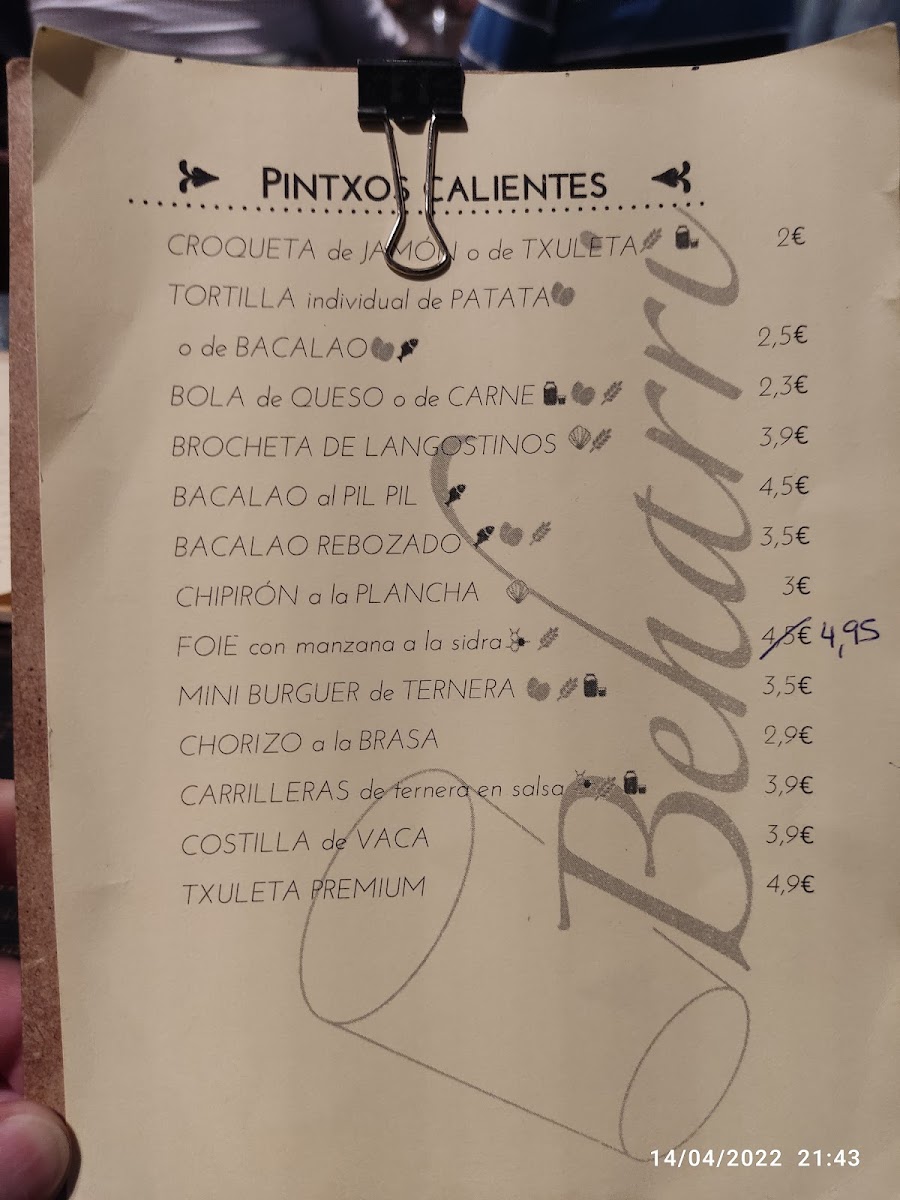 PINTXOS CALIENTES
CROQUETA de JAMÓN o de TXULETA 2€
TORTILLA individual de PATATA
o de BACALAO 2,5€
BOLA de QUESO o de CARNE 2,3€
BROCHETA DE LANGOSTINOS 3,9€
BACALAO al PIL PIL 4,5€
BACALAO REBOZADO 3,5€
CHIPIRÓN a la PLANCHA 3€
FOIE con manzana a la sidra 4,5€ 4,95
MINI BURGUER de TERNERA 3,5€
CHORIZO a la BRASA 2,9€
CARRILLERAS de ternera en salsa 3,9€
COSTILLA de VACA 3,9€
TXULETA PREMIUM 4,9€
Beharri
14/04/2022 21:43